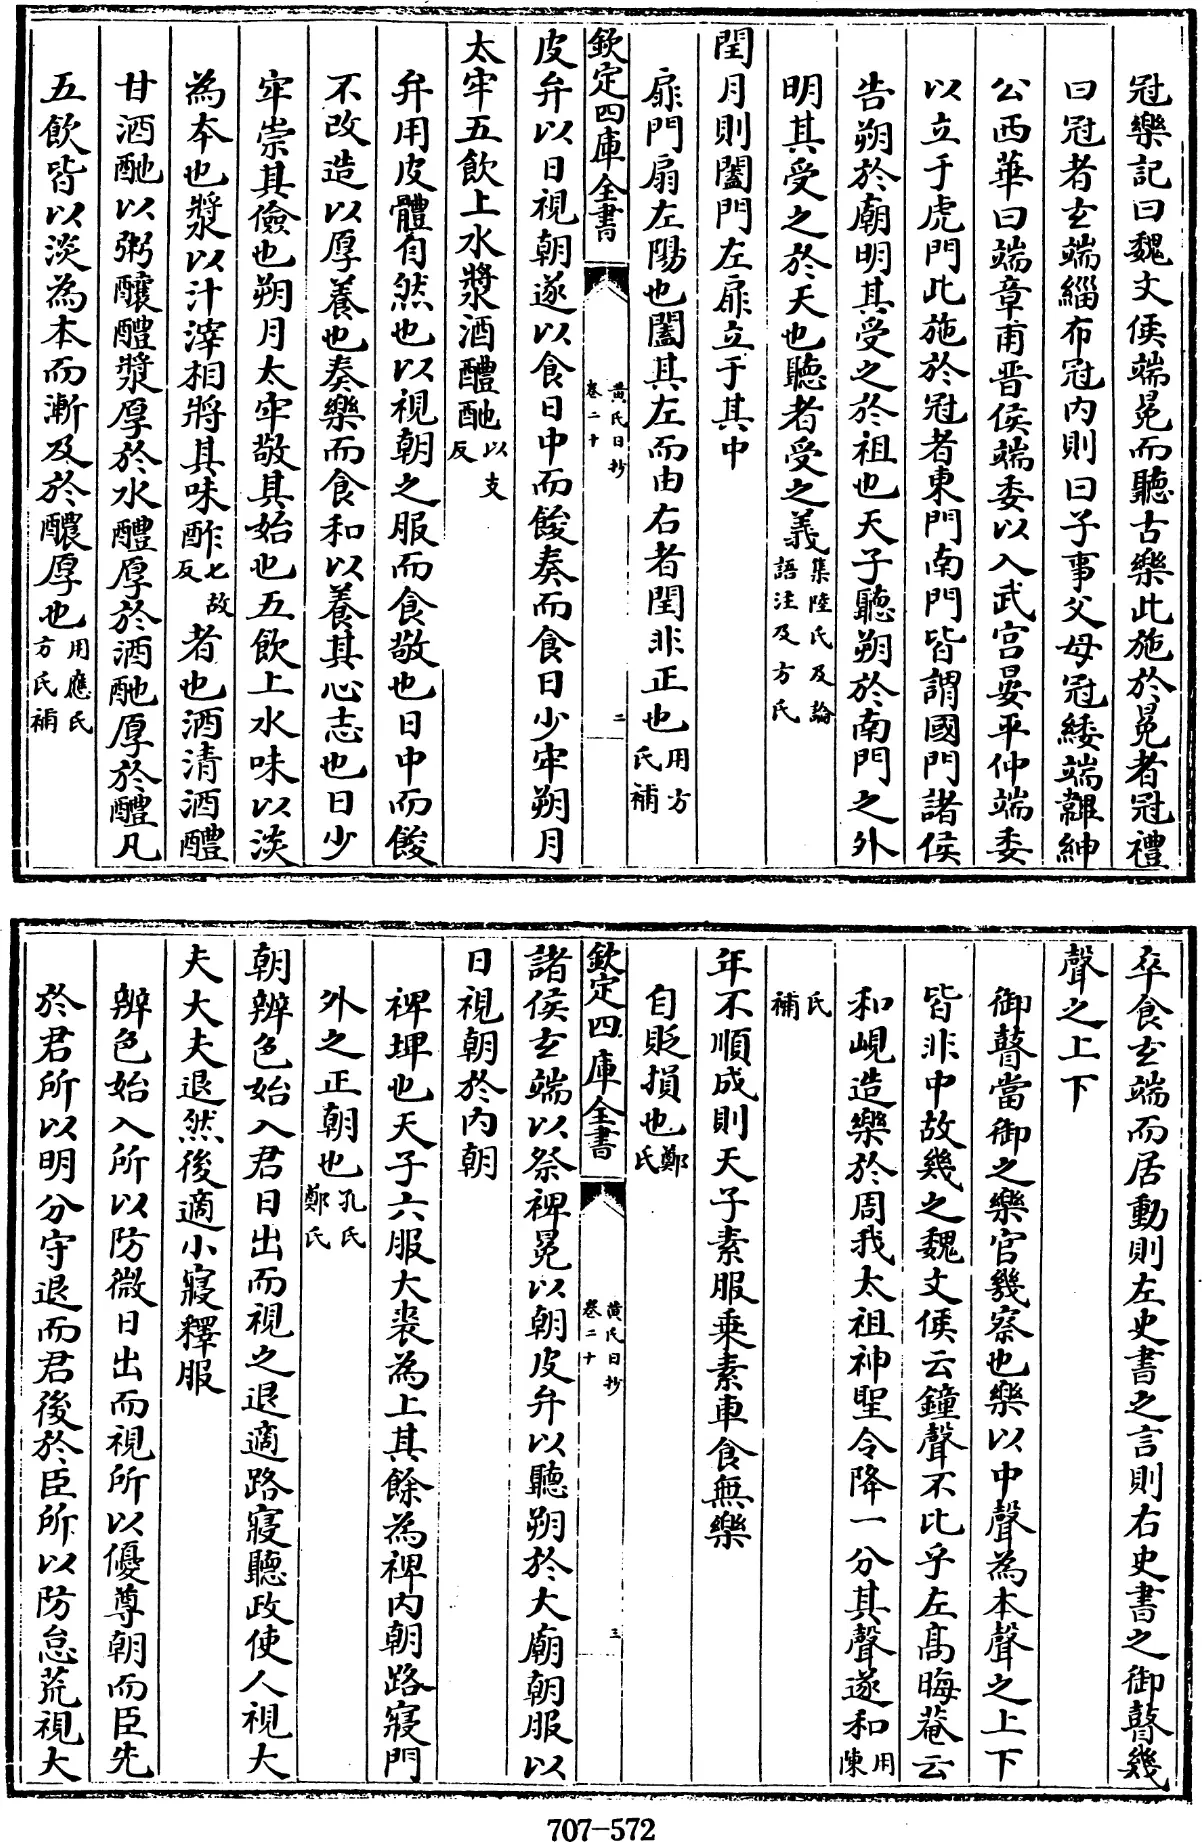 冠樂記曰魏文侯端冕而聽古樂此施於冕者冠禮
曰冠者玄端緇布冠内則曰子事父母冠緌端韠紳
公西華曰端章甫晋侯端委以入武宫晏平仲端委
以立于虎門此施於冠者東門南門皆謂國門諸侯
告朔於廟明其受之於祖也天子聽朔於南門之外
明其受之於天也聽者受之義集陸氏及論語注及方氏
閏月則闔門左扉立于其中
扉門扇左陽也闔其左而由右者閏非正也用方氏補
欽定四庫全書 黄氏日抄 卷二十 二
皮弁以日視朝遂以食日中而餕奏而食日少牢朔月
太牢五飲上水漿酒醴酏以支反
弁用皮體自然也以視朝之服而食敬也日中而餕
不改造以厚養也奏樂而食和以養其心志也日少
牢崇其儉也朔月太牢敬其始也五飲上水味以淡
為本也漿以汁滓相將其味酢七故反者也酒清酒醴
甘酒酏以粥釀醴漿厚於水醴厚於酒酏厚於醴凡
五飲皆以淡為本而漸及於醲厚也用應氏方氏補
卒食玄端而居動則左史書之言則右史書之御瞽幾
聲之上下
御瞽當御之樂官幾察也樂以中聲為本聲之上下
皆非中故幾之魏文侯云鐘聲不比乎左髙晦菴云
和峴造樂於周我太祖神聖令降一分其聲遂和用陳
氏補
年不順成則天子素服乗素車食無樂
自貶損也鄭氏
欽定四庫全書 黄氏日抄 卷二十 三
諸侯玄端以祭裨冕以朝皮弁以聽朔於大廟朝服以
日視朝於内朝
裨埤也天子六服大裘為上其餘為裨内朝路寢門
外之正朝也孔氏鄭氏
朝辨色始入君日出而視之退適路寢聽政使人視大
夫大夫退然後適小寢釋服
辨色始入所以防微日出而視所以優尊朝而臣先
於君所以明分守退而君後於臣所以防怠荒視大
707-572